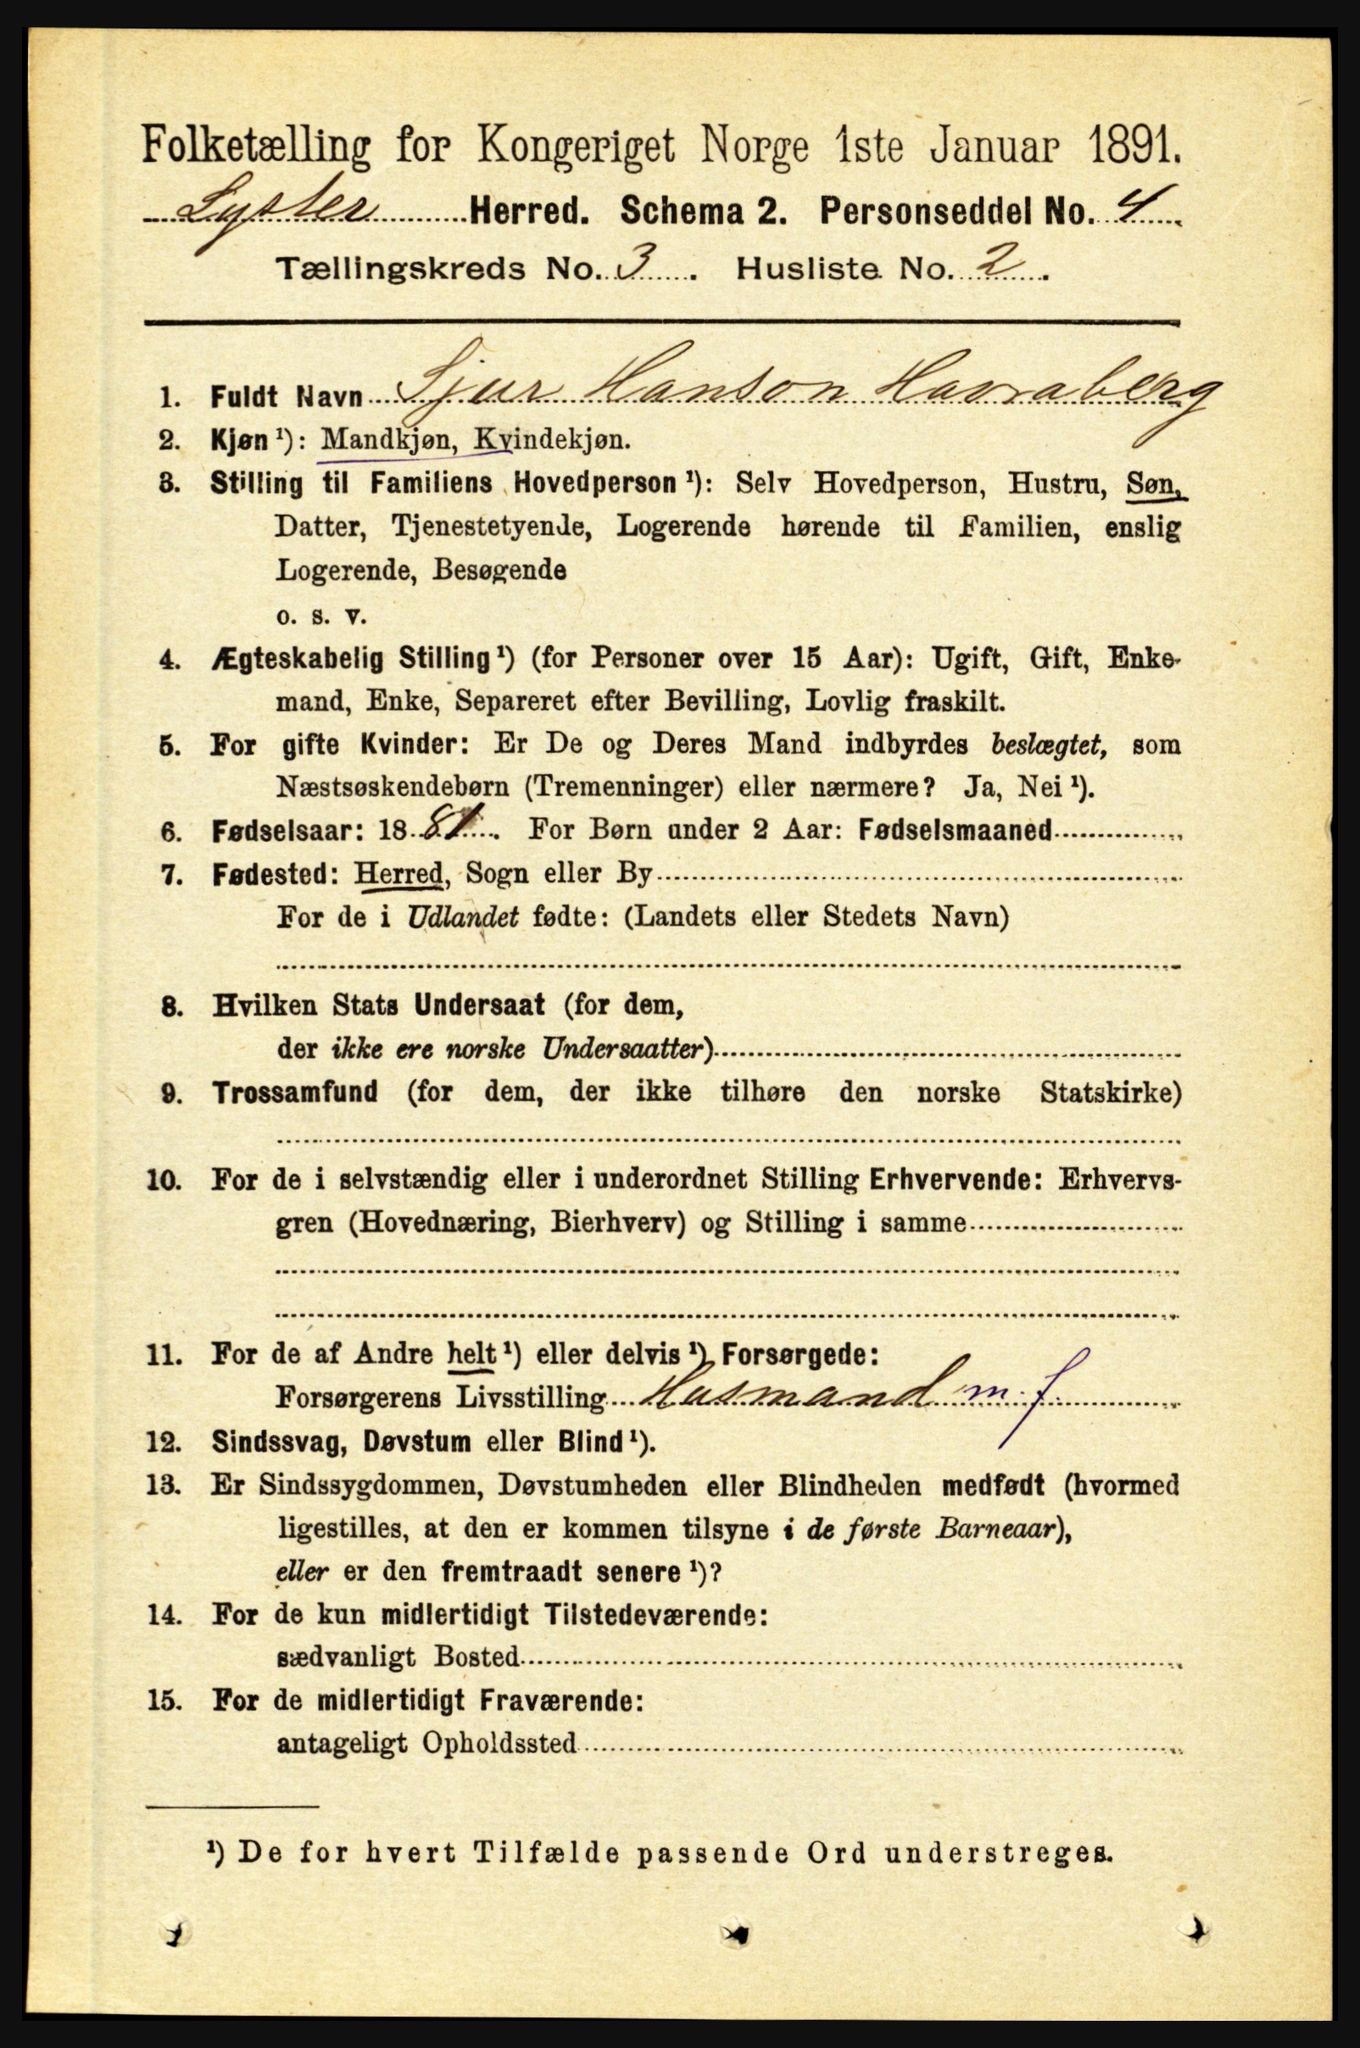 Folketælling for Kongeriget Norge 1ste Januar 1891.
Lyster Herred. Schema 2. Personseddel No. 4
Tællingskreds No. 3. Husliste No. 2.
1. Fuldt Navn Sjur Hanson Havraberg
2. Kjøn ¹): Mandkjøn, Kvindekjøn.
3. Stilling til Familiens Hovedperson ¹): Selv Hovedperson, Hustru, Søn,
Datter, Tjenestetyende, Logerende hørende til Familien, enslig
Logerende, Besøgende
o. s. v.
4. Ægteskabelig Stilling ¹) (for Personer over 15 Aar): Ugift, Gift, Enke-
mand, Enke, Separeret efter Bevilling, Lovlig fraskilt.
5. For gifte Kvinder: Er De og Deres Mand indbyrdes beslægtet, som
Næstsøskendebørn (Tremenninger) eller nærmere? Ja, Nei ¹).
6. Fødselsaar: 1881. For Børn under 2 Aar: Fødselsmaaned
7. Fødested: Herred, Sogn eller By
For de i Udlandet fødte: (Landets eller Stedets Navn)
8. Hvilken Stats Undersaat (for dem,
der ikke ere norske Undersaatter)
9. Trossamfund (for dem, der ikke tilhøre den norske Statskirke)
10. For de i selvstændig eller i underordnet Stilling Erhvervende: Erhvervs-
gren (Hovednæring, Bierhverv) og Stilling i samme
11. For de af Andre helt ¹) eller delvis ¹) Forsørgede:
Forsørgerens Livsstilling Husmand m. f.
12. Sindssvag, Døvstum eller Blind ¹).
13. Er Sindssygdommen, Døvstumheden eller Blindheden medfødt (hvormed
ligestilles, at den er kommen tilsyne i de første Barneaar),
eller er den fremtraadt senere ¹)?
14. For de kun midlertidigt Tilstedeværende:
sædvanligt Bosted
15. For de midlertidigt Fraværende:
antageligt Opholdssted
¹) De for hvert Tilfælde passende Ord understreges.